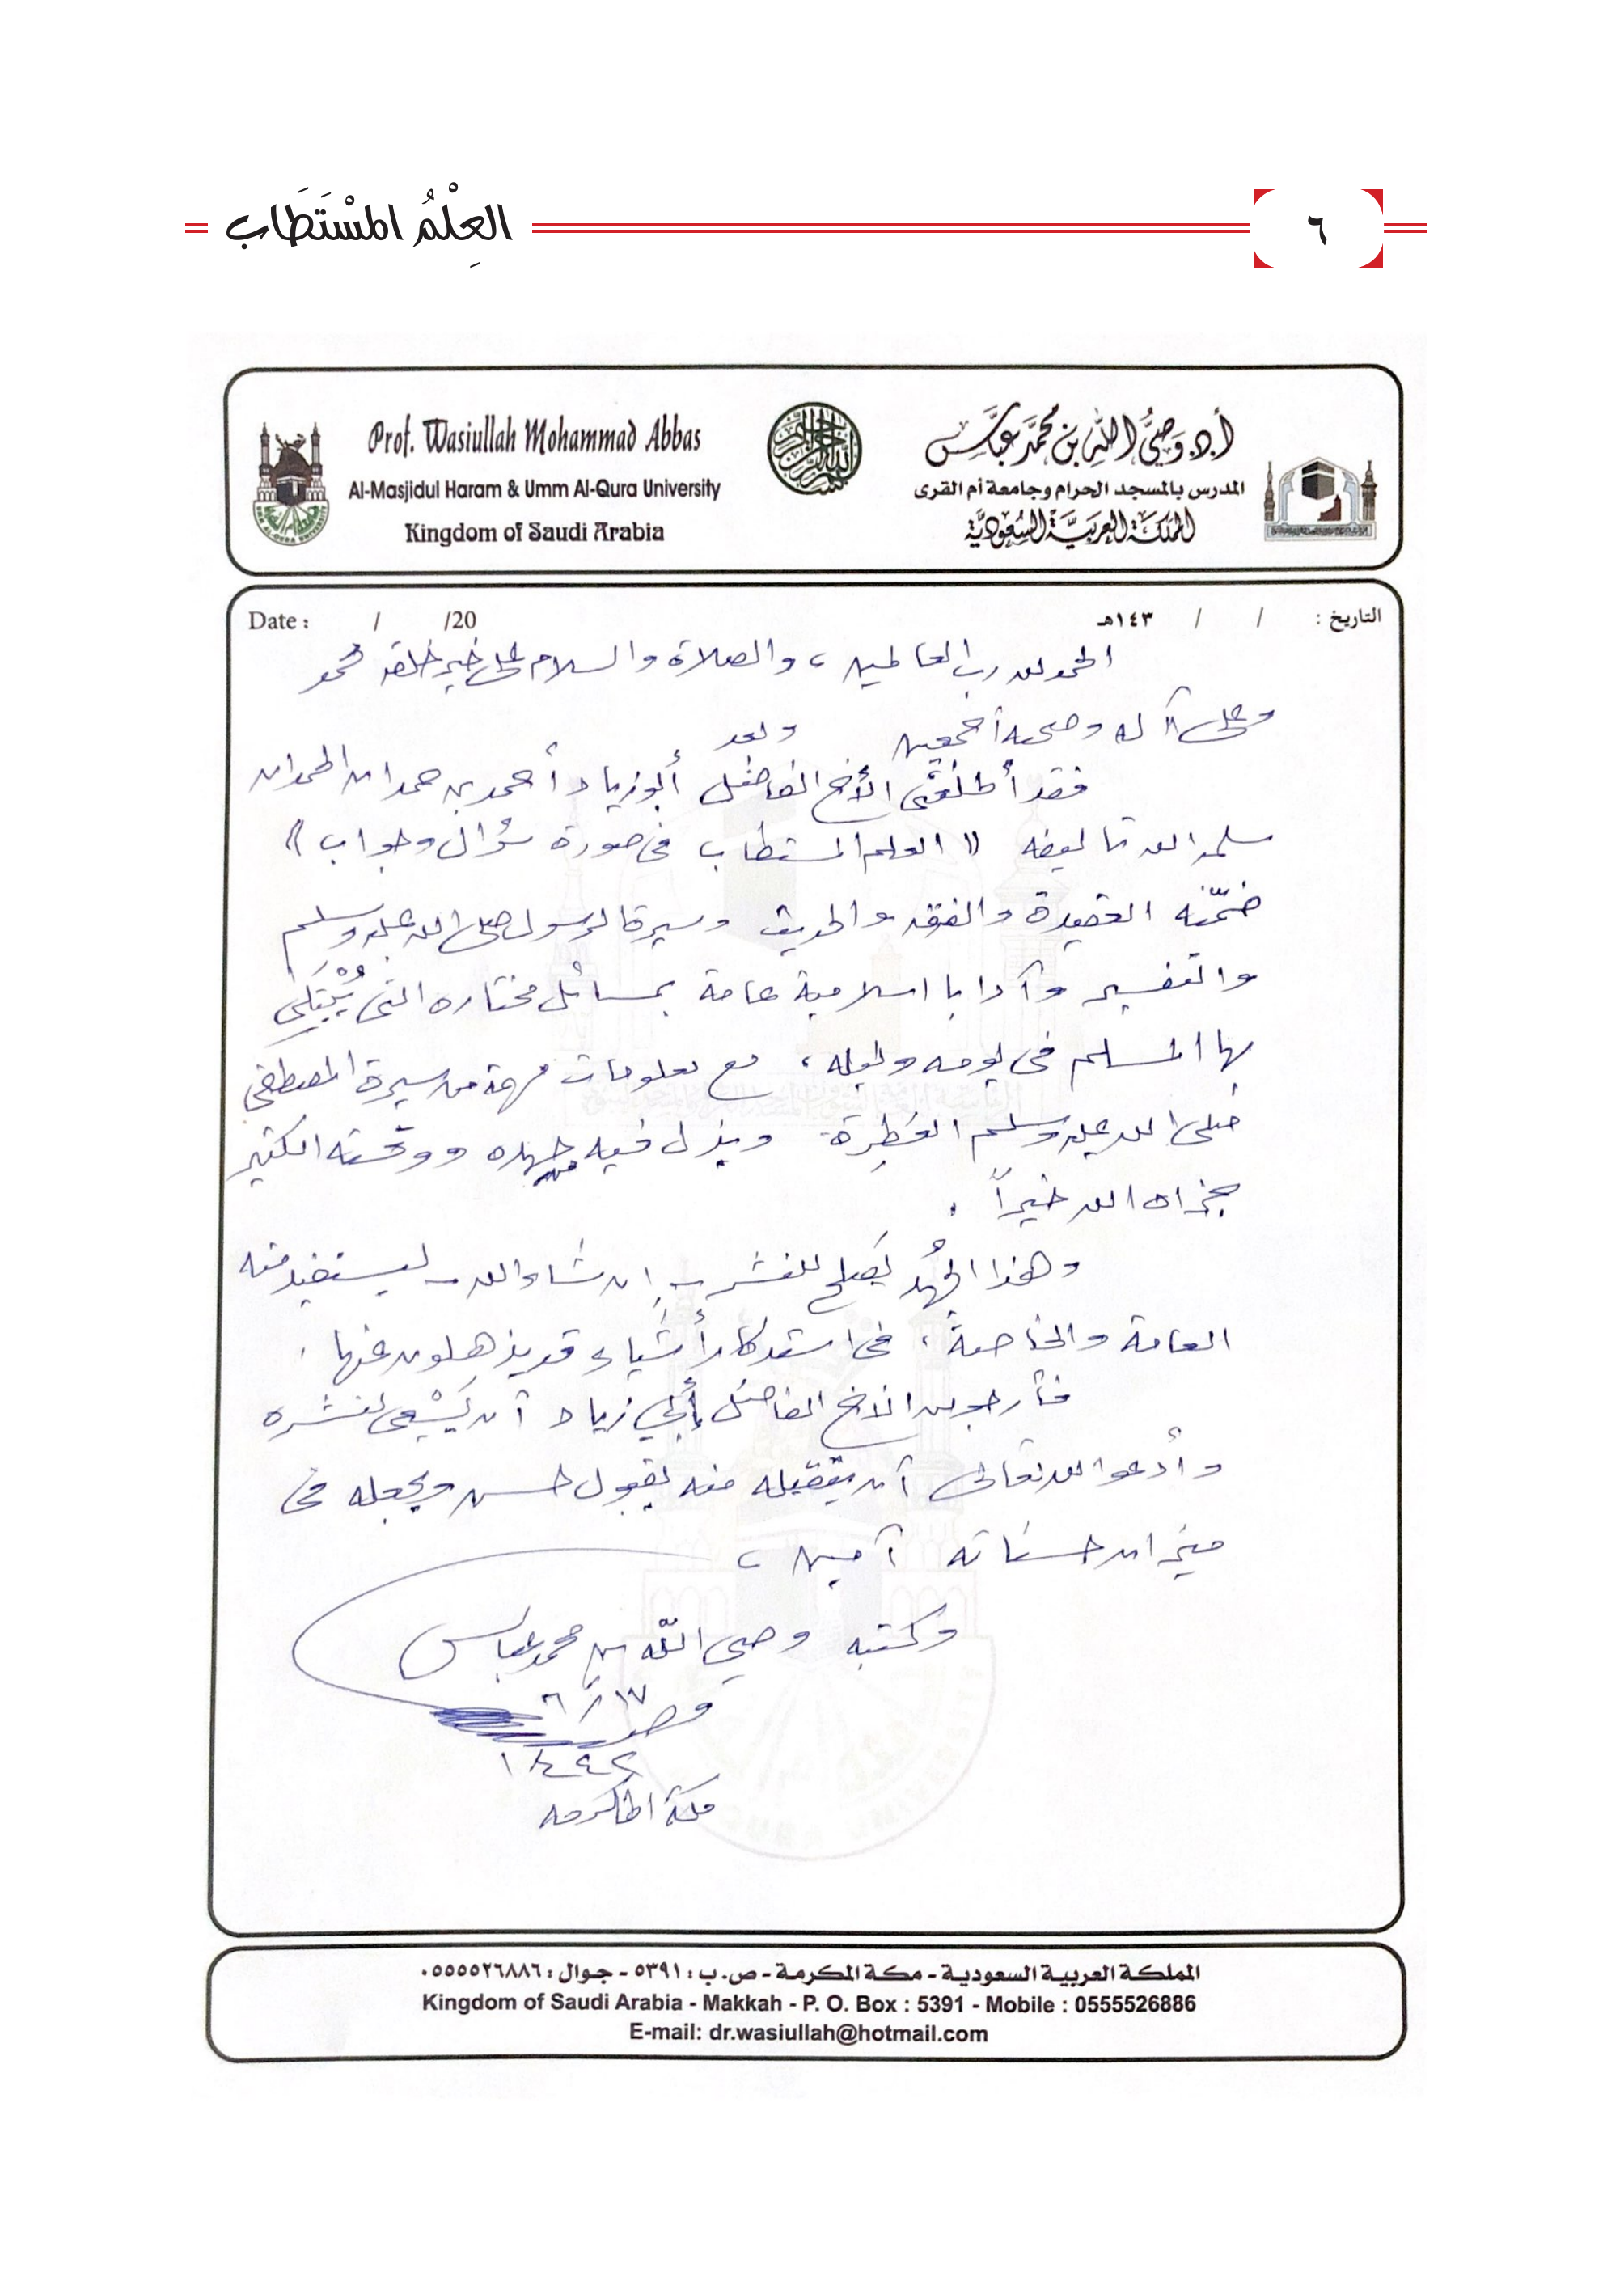 العِلْمُ المسْتَطَاب
٦
أ.د. وَصِيُّ اللهِ بن مُحمَّد عَبَّاس
المدرس بالمسجد الحرام وجامعة أم القرى
المملكة العربية السعودية
Prof. Wasiullah Mohammad Abbas
Al-Masjidul Haram & Umm Al-Qura University
Kingdom of Saudi Arabia
التاريخ : / / ١٤٣هـ
Date : / /20
الحمد لله رب العالمين، والصلاة والسلام على خير خلقه محمد
وعلى آله وصحبه أجمعين وبعد
فقد أطلعني الأخ الفاضل أبو زياد أحمد بن حمدان الحمدان
سلمه الله تأليفه «العلم المستطاب في صورة سُؤال وجواب»
ضمّنه العقيدة والفقه والحديث وسيرة الرسول صلى الله عليه وسلم
والتفسير وآدابا اسلامية عامة بمسائل مختاره التي يُبْتَلى
بها المسلم في يومه وليله، مع معلومات مهمة من سيرة المصطفى
صلى الله عليه وسلم العَطِرة. وبذل فيه جهده ووقته الكثير
فجزاه الله خيراً.
وهذا الجهُد يَصلح للنشر - إن شاء الله - ليستفيد منه
العامة والخاصة، في استدكار أشياء قد يذهلون عنها.
فأرجو من الأخ الفاضل أبي زياد أن يَسْعى لنشره
وأدعوا الله تعالى أن يتقبله منه بقبول حسن ويجعله في
ميزان حسناته آمين،
وكتبه وصي الله بن محمد عباس
١٧/٦
١٤٤٢
مكة المكرمه
المملكة العربية السعودية - مكة المكرمة - ص. ب : ٥٣٩١ - جوال : ٠٥٥٥٥٢٦٨٨٦
Kingdom of Saudi Arabia - Makkah - P. O. Box : 5391 - Mobile : 0555526886
E-mail: dr.wasiullah@hotmail.com